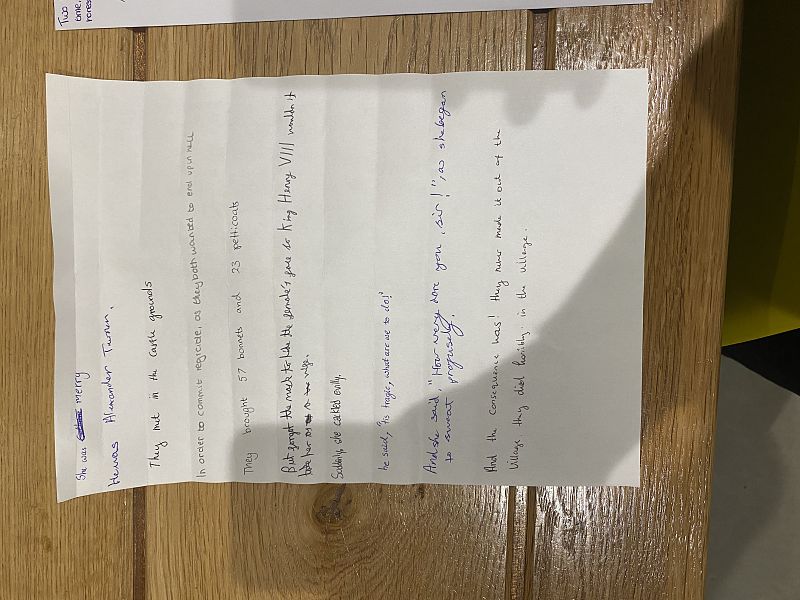 Two
one.
She was merry
He was Alexander Turnin.
They met in the castle grounds
In order to commit regicide, as they both wanted to end up in hell
They brought 57 bonnets and 23 petticoats
But forgot the mask to hide the female's face so King Henry VIII wouldn't
take her as a wife.
Suddenly, she cackled evilly,
he said, 'Tis tragic, what are we to do!'
And she said, "How very dare you, sir!", as she began
to sweat profusely.
And the consequence was! they never made it out of the
village they died horribly in the village.